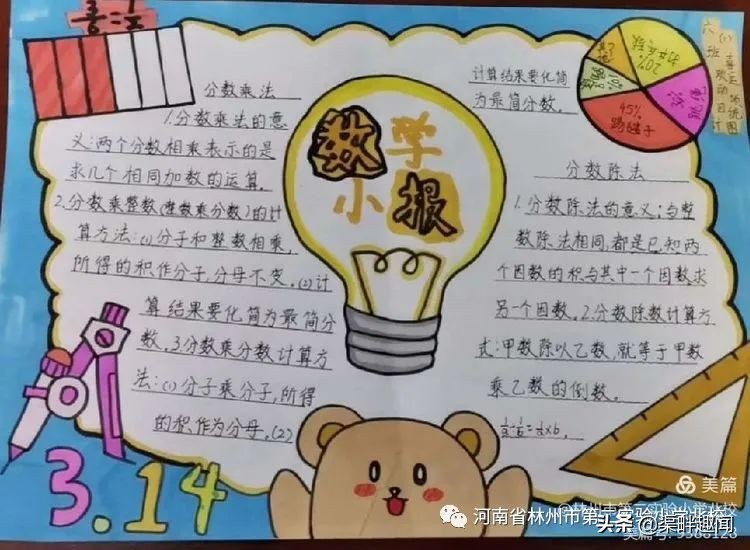 3/6=1/2
分数乘法
1.分数乘法的意
义:两个分数相乘表示的是
求几个相同加数的运算.
2.分数乘整数(整数乘分数)的计
算方法:(1)分子和整数相乘,
所得的积作分子,分母不变.(2)计
算结果要化简为最简分
数,3分数乘分数计算方
法:(1)分子乘分子,所得
的积作为分母。(2)
数学
小报
计算结果要化简
为最简分数。
分数除法
1.分数除法的意义:与整
数除法相同,都是已知两
个因数的积与其中一个因数求
另一个因数。2.分数除数计算方
式:甲数除以乙数,就等于甲数
乘乙数的倒数。
其他
20%
10%
45%
踢毽子
六(1)班喜欢运动项目统计图
3.14
美篇
@林州市第二实验小学北校
河南省林州市第
头条@渠畔趣闻